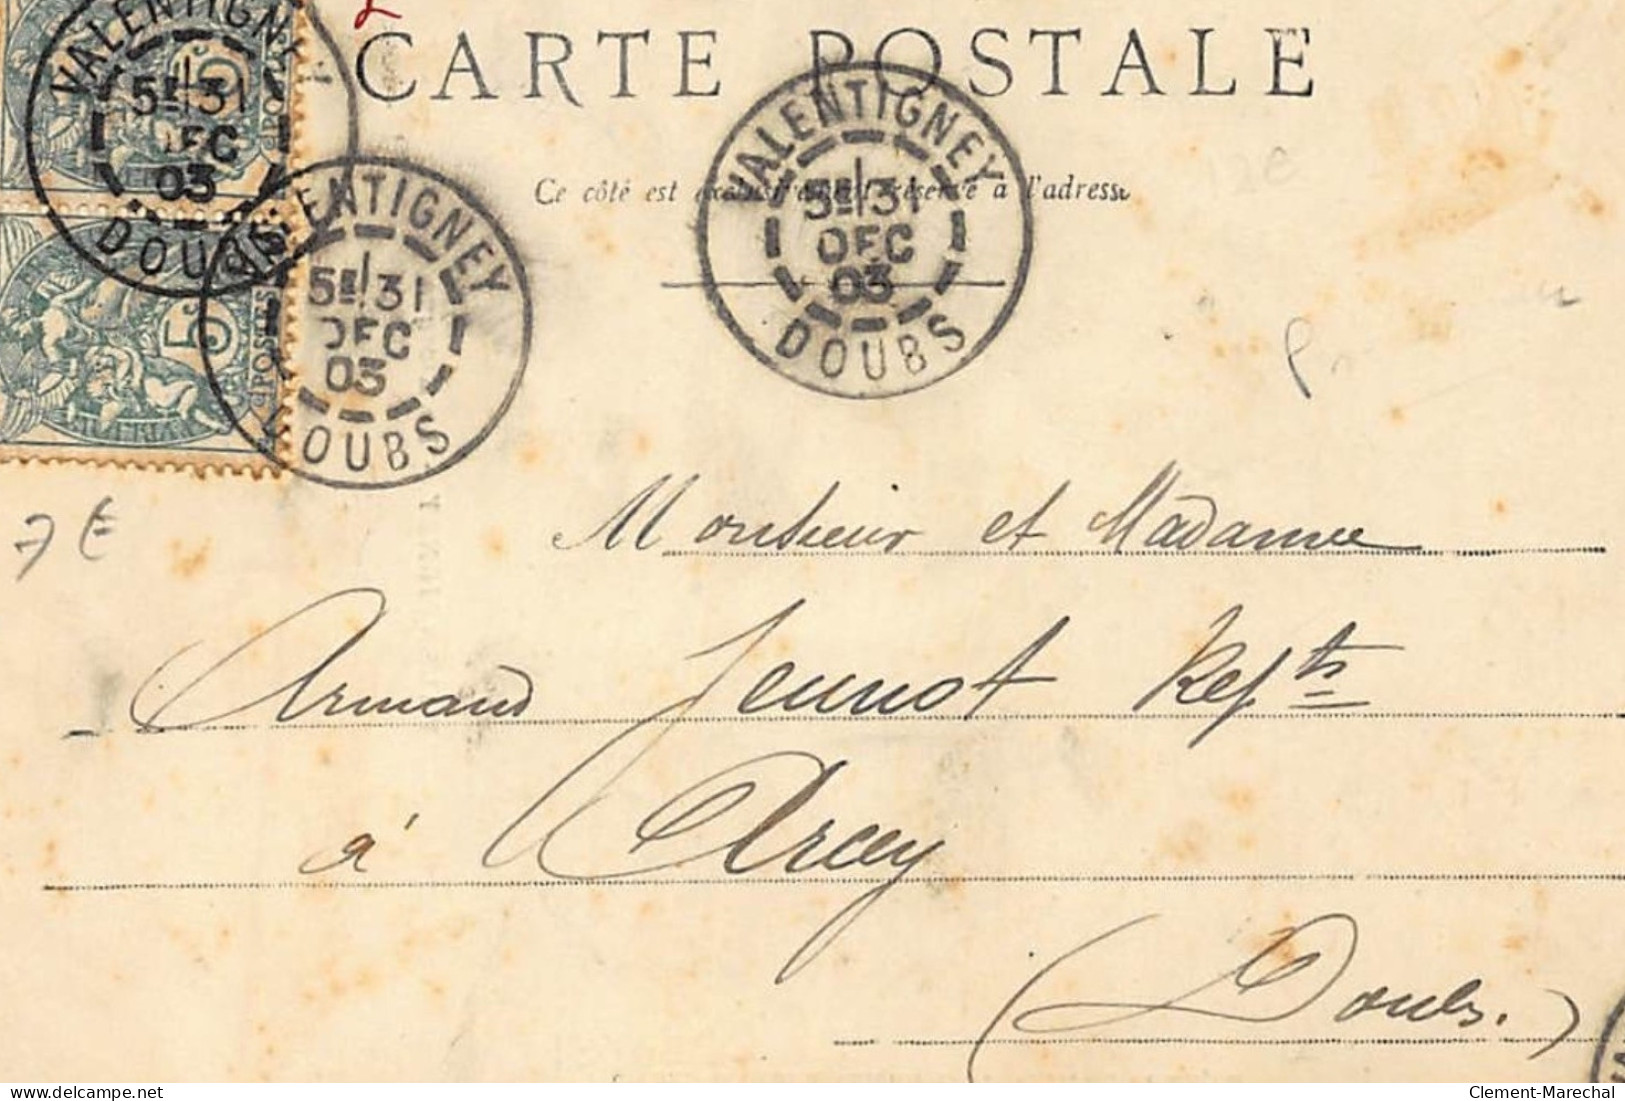 CARTE POSTALE
VALENTIGNEY
5E 31
DEC
03
DOUBS
VALENTIGNEY
5E 31
DEC
03
DOUBS
VALENTIGNEY
5E 31
DEC
03
DOUBS
Ce côté est exclusivement réservé à l'adresse
5c
POSTES
12€
7€
Monsieur et Madame
Armand Jeunot Repts
à Arcey
(Doubs.)
delcampe.net
Clement-Marechal